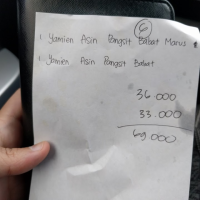 6
1 Yamien Asin Pangsit Babat Manis
1 Yamien Asin Pangsit Babat
36.000
33.000
69.000